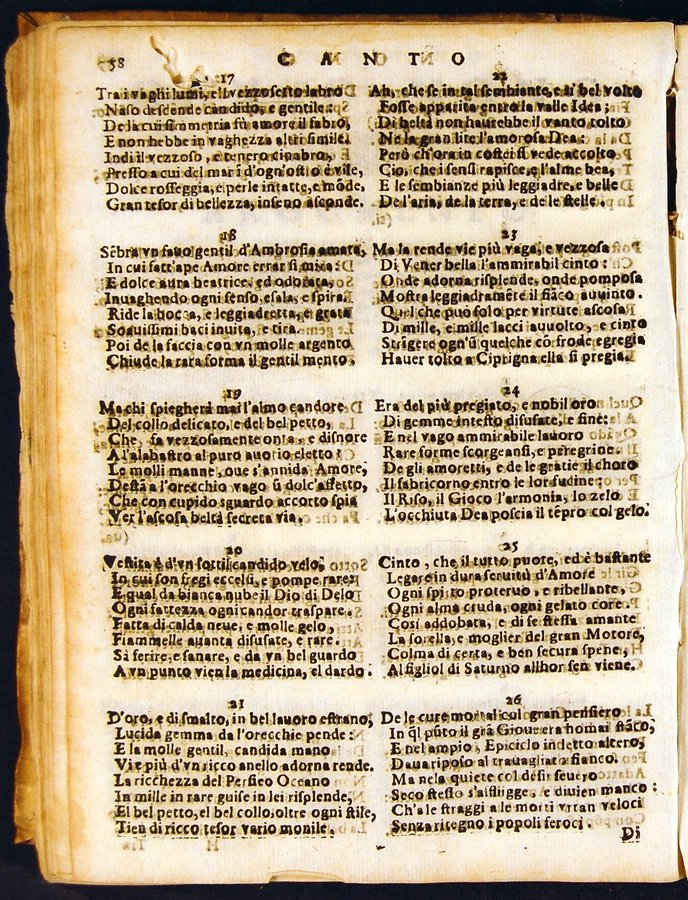 58 CANTO
17
Tra i vaghi lumi, e'l vezzosetto labro
Naso descende candido, e gentile:
De la cui simmetria fù amore il fabro,
E non hebbe in vaghezza altri simile:
Indi il vezzoso, e tenero cinabro,
Presso a cui del mar il d'ogn'ostio è vile,
Dolce rosseggia, e perle intatte, e mōde,
Gran tesor di bellezza, in seno asconde.
18
Sēbra vn fauo gentil d'Ambrosia amata,
In cui fatt'ape Amore errar si mira:
E dolce aura beatrice, ed odorata,
Inuaghendo ogni senso, esala, e spira.
Ride la bocca, e leggiadretta, e grata
Soauissimi baci inuita, e tira.
Poi de la faccia con vn molle argento
Chiude la rara forma il gentil mento.
19
Ma chi spiegherà mai l'almo candore
Del collo delicato, e del bel petto,
Che, fa vezzosamente onta, e disnore
A l'alabastro al puro auorio eletto:
Le molli manne, oue s'annida Amore,
Destā a l'orecchio vago ū dolc'affetto,
Che con cupido sguardo accorto spia
Ver l'ascosa beltà secreta via.
20
Vestita è d'vn sottil candido velo,
In cui son fregi eccelsi, e pompe rare:
E qual da bianca nube il Dio di Delo
Ogni fattezza ogni candor traspare.
Fatta di calda neue, e molle gelo,
Fiammelle auanta disusate, e rare.
Sà ferire, e sanare, e da vn bel guardo
A vn punto vien la medicina, el dardo.
21
D'oro, e di smalto, in bel lauoro estrano,
Lucida gemma da l'orecchie pende:
E la molle gentil, candida mano
Vie più d'vn ricco anello adorna rende.
La ricchezza del Perseo Oceano
In mille in rare guise in lei risplende,
El bel petto, el bel collo, oltre ogni stile,
Tien di ricco tesor vario monile.
H
22
Ah, che se in tal sembiante, e sì bel volto
Fosse apparita entro la valle Idea;
Di beltà non haurebbe il vanto tolto
Ne la gran lite l'amorosa Dea:
Però ch'ora in costei si vede accolto
Ciò, che i sensi rapisce, e l'alme bea,
E le sembianze più leggiadre, e belle
De l'aria, de la terra, e de le stelle.
23
Ma la rende vie più vaga, e vezzosa
Di Vener bella l'ammirabil cinto:
Onde adorna risplende, onde pomposa
Mostra leggiadramēte il fiāco auuinto.
Quel che può solo per virtute ascosa
Di mille, e mille lacci auuolto, e cinto
Strīgere ogn'ū quelche cō frode egregia
Hauer tolto a Ciprigna ella si pregia.
24
Era del più pregiato, e nobil oro
Di gemme intesto disusate, e fine:
E nel vago ammirabile lauoro
Rare forme scorgeansi, e peregrine.
De gli amoretti, e de le gratie il choro
Il fabricorno entro le lor fucine:
Il Riso, il Gioco l'armonia, lo zelo
L'occhiuta Dea poscia il tēpro col gelo.
25
Cinto, che il tutto puote, ed è bastante
Legare in dura seruitù d'Amore
Ogni spirto proteruo, e ribellante,
Ogni alma cruda, ogni gelato core.
Così addobbata, e di se stessa amante
La sorella, e moglier del gran Motore,
Colma di certa, e ben secura spene,
Al figliol di Saturno allhor sen viene.
26
De le cure mortali col gran pensiero
In q̄l pūto il grā Gioue era homai stāco,
E nel ampio, Epiciclo indetto altero,
Daua riposo al trauagliato fianco.
Ma nela quiete col desir seuero
Seco stesso s'affligge, e diuien manco:
Ch'a le straggi a le morti vrtan veloci
Senza ritegno i popoli feroci.
Di